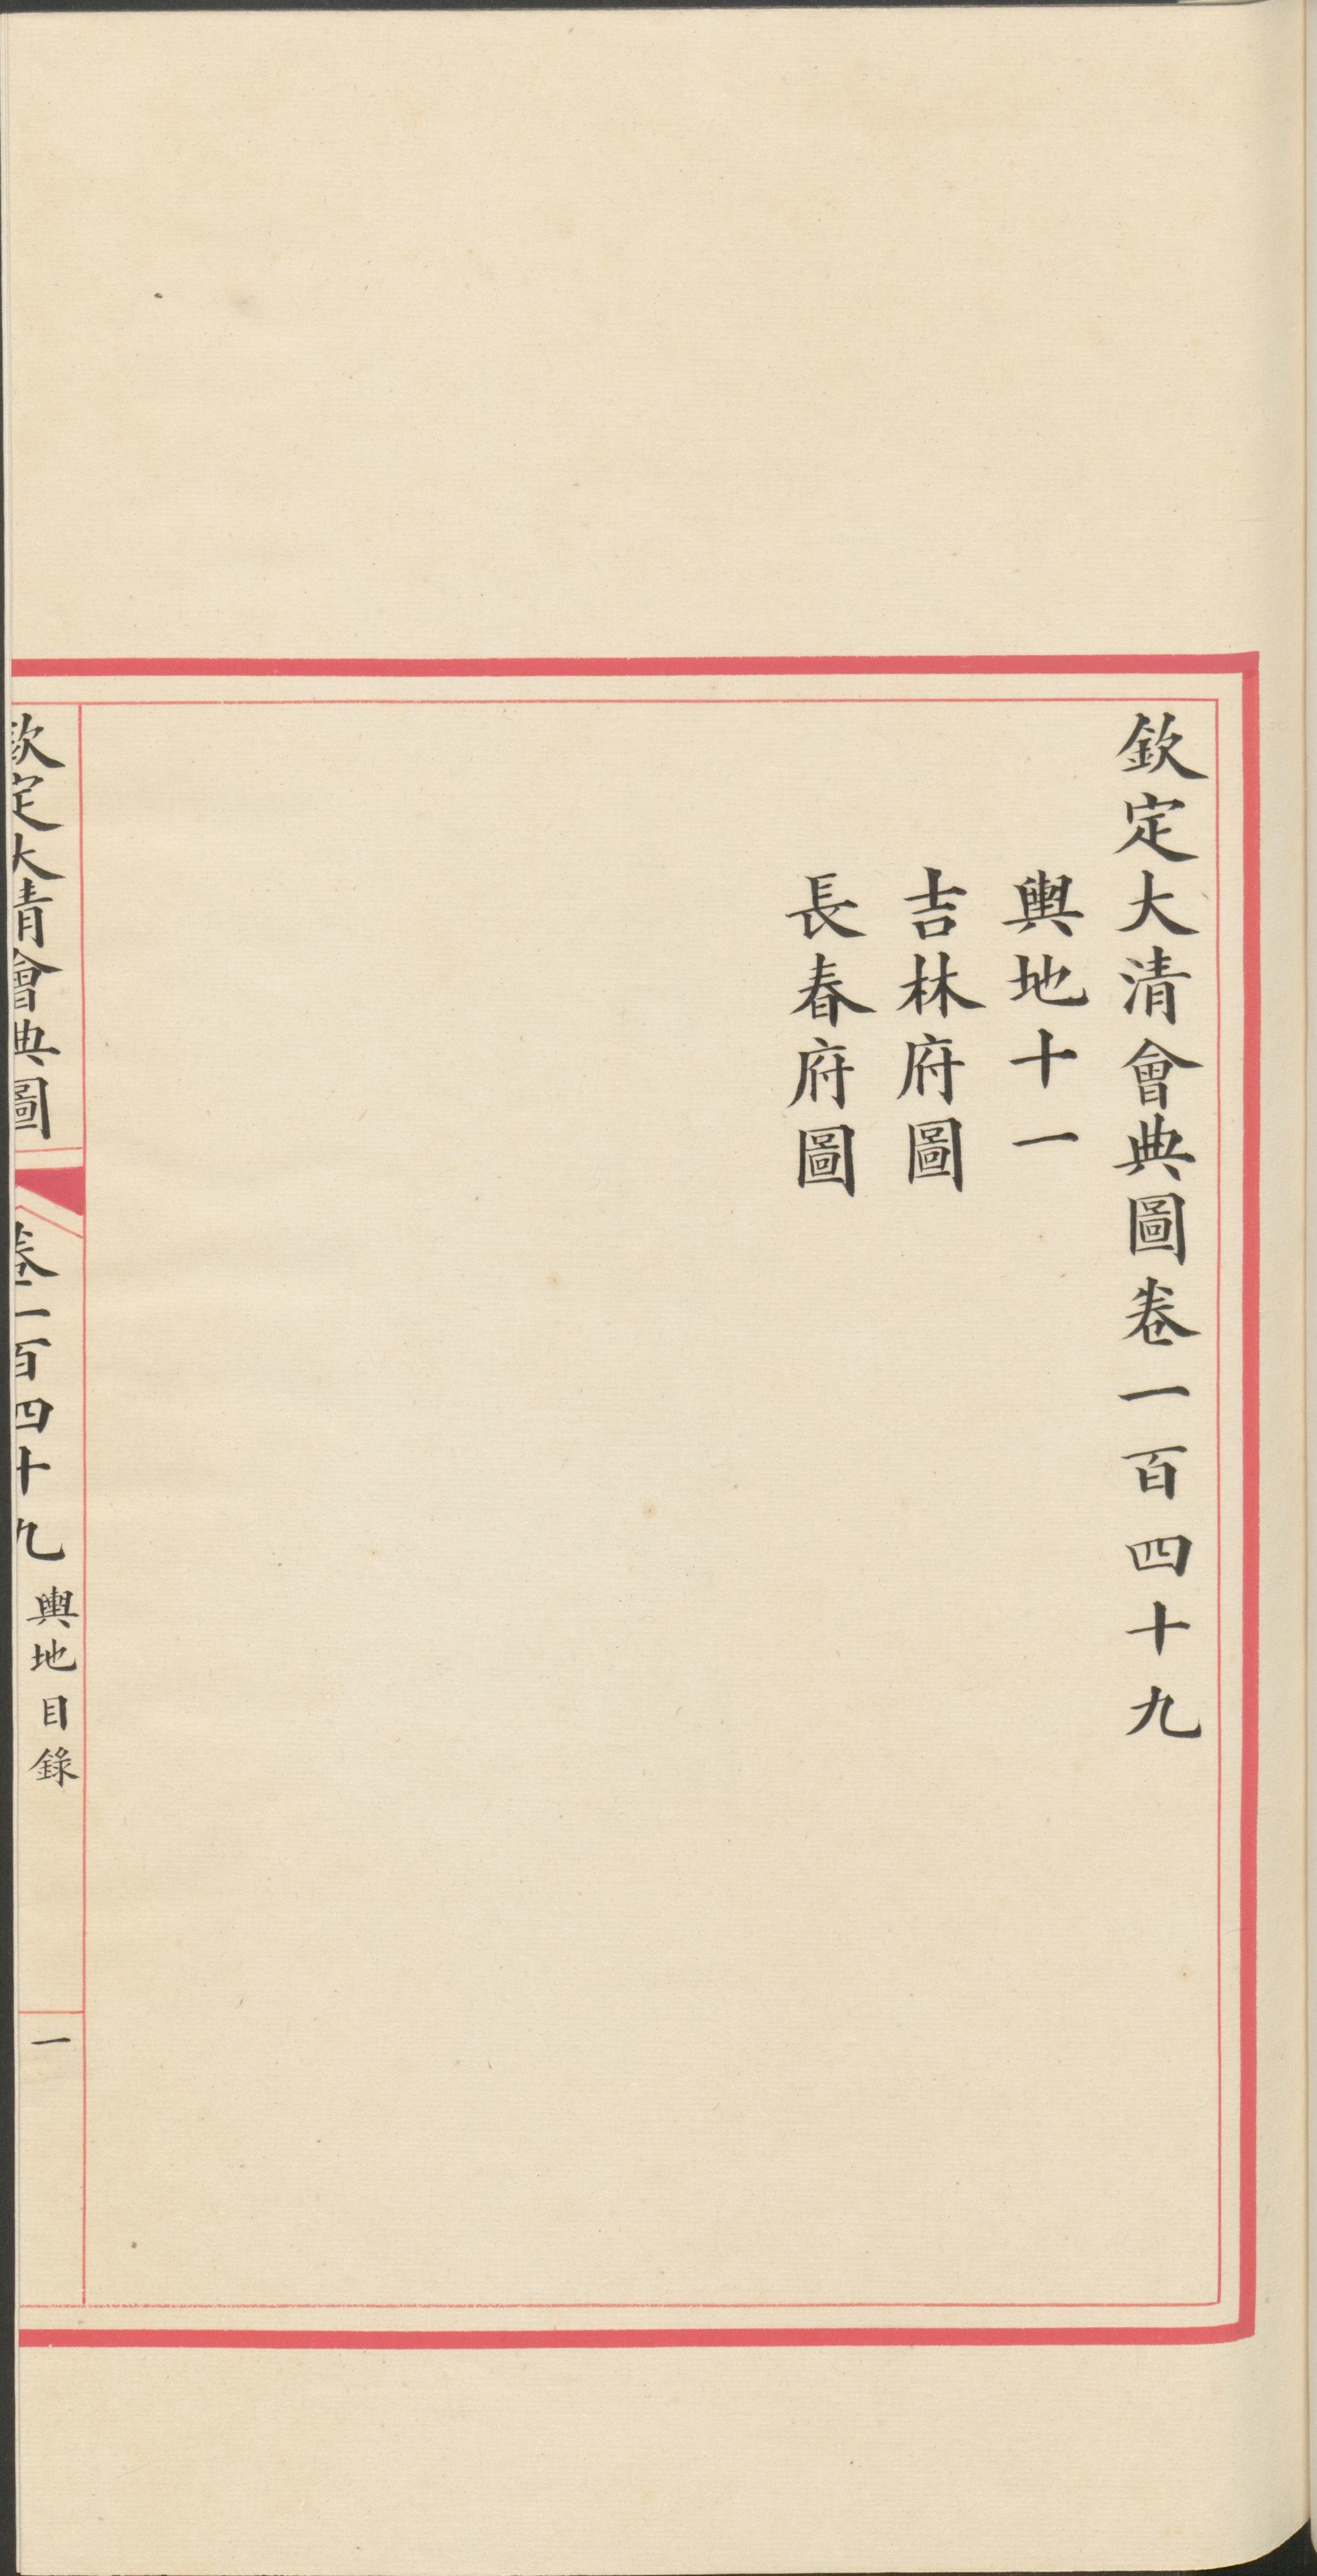 欽定大清會典圖卷一百四十九
輿地十一
吉林府圖
長春府圖
欽定大清會典圖
卷一百四十九
輿地目錄
一